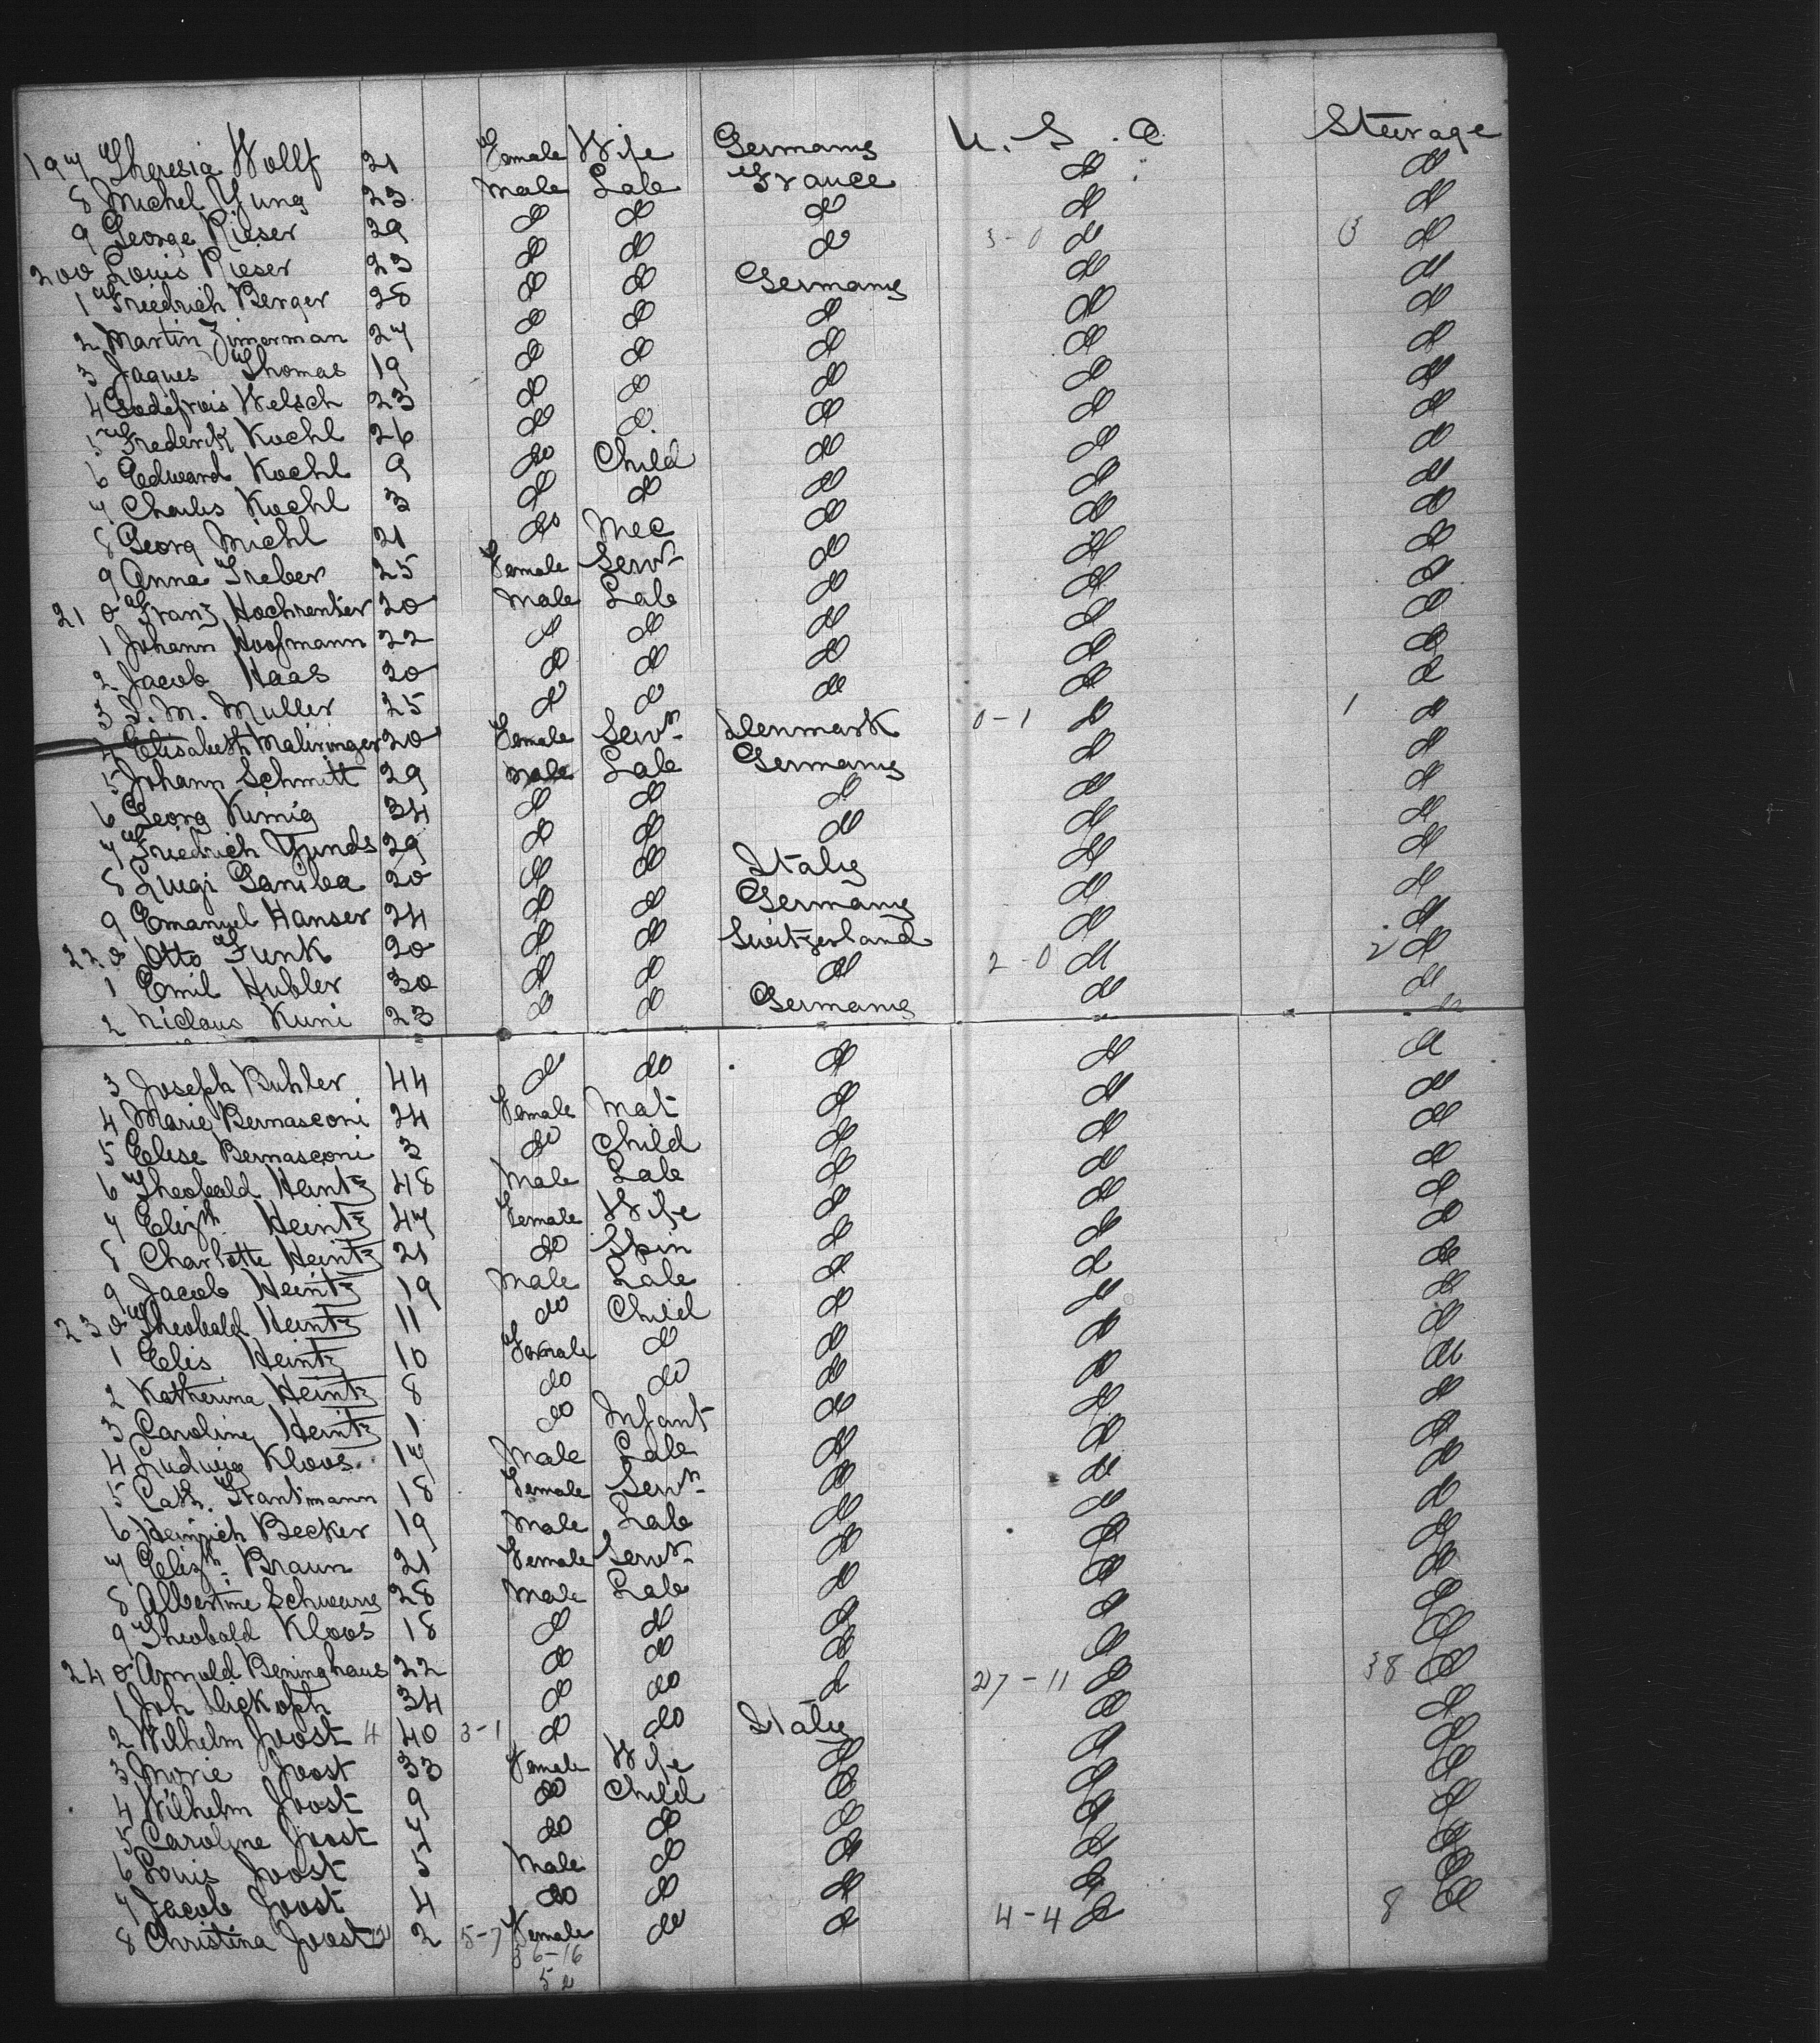 197 Theresia Wollf 21 Female Wife Germany U. S. A. Steerage
8 Michel Yung 23 Male Lab France do do
9 George Rieser 29 do do do do do
200 Louis Rieser 23 do do do 3-0 do 3 do
1 Friedrich Berger 28 do do Germany do do
2 Martin Zimerman 27 do do do do do
3 Jaques Thomas 19 do do do do do
4 Godefrois Welsch 23 do do do do do
5 Frederik Kochl 26 do do do do do
6 Edward Kochl 9 do Child do do do
7 Charles Kochl 3 do do do do do
8 Georg Michl 21 do Mec do do do
9 Anna Treber 25 Female Servt do do do
210 Franz Hochrenter 20 Male Lab do do do
1 Johann Hoofmann 22 do do do do do
2 Jacob Haas 20 do do do do do
3 S. M. Muller 25 do do do do do
4 Elisabeth Maliringer 20 Female Servt Denmark 0-1 do 1 do
5 Johann Schmitt 29 Male Lab Germany do do
6 Georg Kimig 34 do do do do do
7 Friedrich Yunds 29 do do do do do
8 Luigi Ganiba 20 do do Italy do do
9 Emanuel Hanser 24 do do Germany do do
220 Otto Funk 20 do do Switzerland do do
1 Emil Hubler 30 do do do 2-0 do 2 do
2 Niclaus Kuni 23 do do Germany do do
3 Joseph Buhler 44 do do do do do
4 Marie Bernasconi 24 Female Mat do do do
5 Elise Bernasconi 3 do Child do do do
6 Theobald Heintz 48 Male Lab do do do
7 Elizth Heintz 47 Female Wife do do do
8 Charlotte Heintz 21 do Spin do do do
9 Jacob Heintz 19 Male Lab do do do
230 Theobald Heintz 11 do Child do do do
1 Elis Heintz 10 Female do do do do
2 Katherina Heintz 8 do do do do do
3 Caroline Heintz 1 do Infant do do do
4 Ludwig Kloos 17 Male Lab do do do
5 Cath. Trantmann 18 Female Servt do do do
6 Heinrich Becker 19 Male Lab do do do
7 Elizth Braun 21 Female Servt do do do
8 Albertine Schwarz 28 Male Lab do do do
9 Theobald Kloos 18 do do do do do
240 Arnold Beninghaus 22 do do do do do
1 Joh Dickoph 34 do do do 27-11 do 38 do
2 Wilhelm Joost 4 40 3-1 do do Italy do do
3 Marie Joost 33 Female Wife do do do
4 Wilhelm Joost 9 do Child do do do
5 Caroline Joost 7 do do do do do
6 Louis Joost 5 Male do do do do
7 Jacob Joost 4 do do do do do
8 Christina Joost 2 5-7 Female do do 4-4 do 8 do
36-16
52